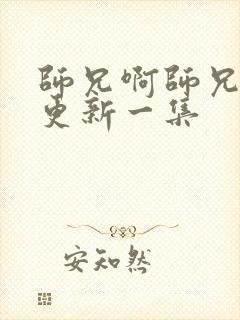 師兄啊師兄
更新一集
安知然